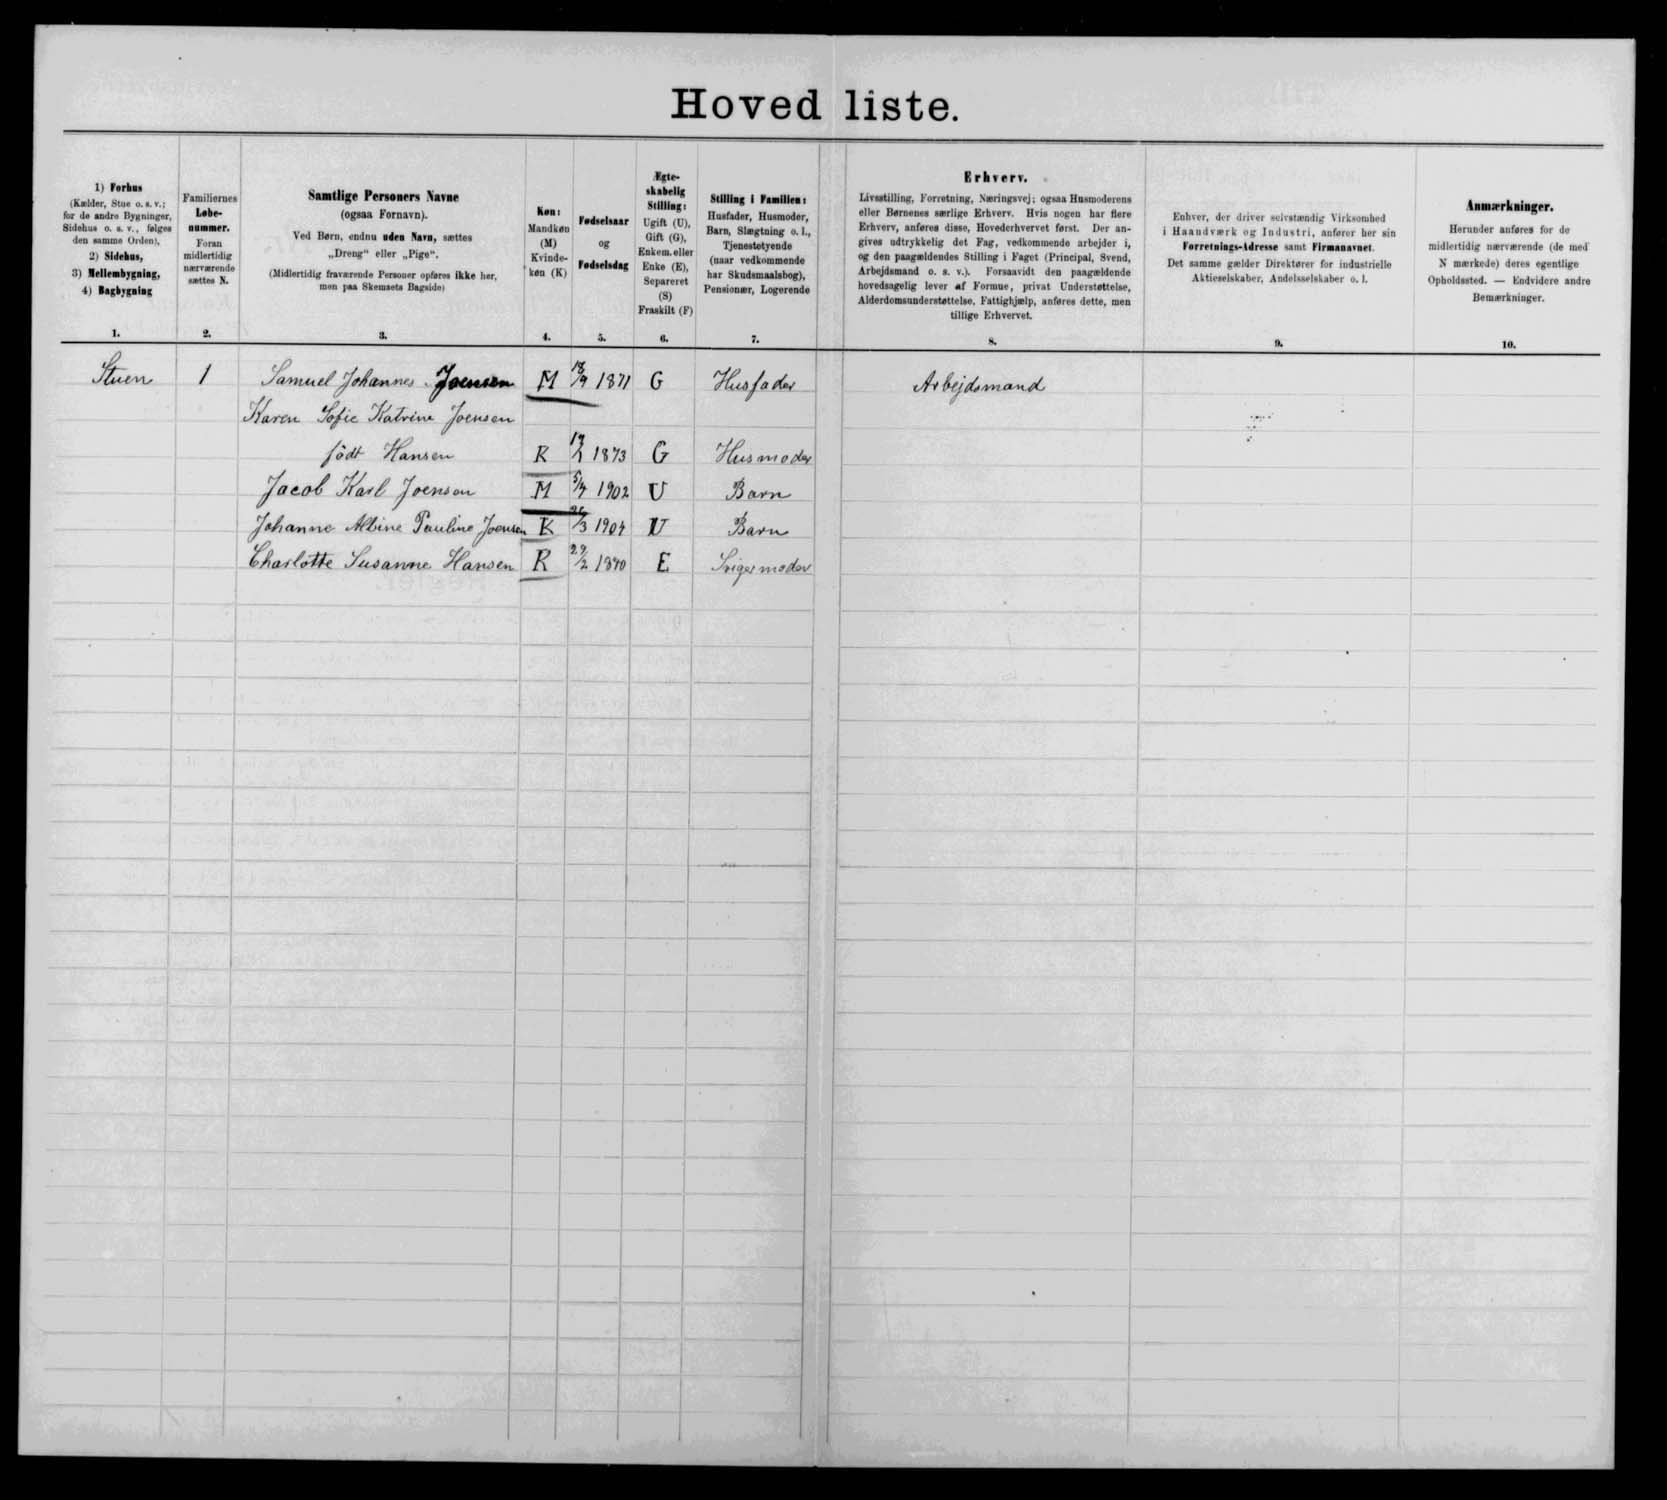 Hovedliste.
1) Forhus
(Kælder, Stue o. s. v.;
for de andre Bygninger,
Sidehus o. s. v., følges
den samme Orden),
2) Sidehus,
3) Mellembygning,
4) Bagbygning
1.
Familiernes
Løbe-
nummer.
Foran
midlertidig
nærværende
sættes N.
2.
Samtlige Personers Navne
(ogsaa Fornavn).
Ved Børn, endnu uden Navn, sættes
„Dreng“ eller „Pige“.
(Midlertidig fraværende Personer opføres ikke her,
men paa Skemaets Bagside)
3.
Køn:
Mandkøn
(M)
Kvinde-
køn (K)
4.
Fødselsaar
og
Fødselsdag
5.
Ægte-
skabelig
Stilling:
Ugift (U),
Gift (G),
Enkem. eller
Enke (E),
Separeret
(S)
Fraskilt (F)
6.
Stilling i Familien:
Husfader, Husmoder,
Barn, Slægtning o. l.,
Tjenestetyende
(naar vedkommende
har Skudsmaalsbog),
Pensionær, Logerende
7.
Erhverv.
Livsstilling, Forretning, Næringsvej; ogsaa Husmoderens
eller Børnenes særlige Erhverv. Hvis nogen har flere
Erhverv, anføres disse, Hovederhvervet først. Der an-
gives udtrykkelig det Fag, vedkommende arbejder i,
og den paagældendes Stilling i Faget (Principal, Svend,
Arbejdsmand o. s. v.). Forsaavidt den paagældende
hovedsagelig lever af Formue, privat Understøttelse,
Alderdomsunderstøttelse, Fattighjælp, anføres dette, men
tillige Erhvervet.
8.
Enhver, der driver selvstændig Virksomhed
i Haandværk og Industri, anfører her sin
Forretnings-Adresse samt Firmanavnet.
Det samme gælder Direktører for industrielle
Aktieselskaber, Andelsselskaber o. l.
9.
Anmærkninger.
Herunder anføres for de
midlertidig nærværende (de med
N mærkede) deres egentlige
Opholdssted. — Endvidere andre
Bemærkninger.
10.
Stuen 1 Samuel Johannes Joensen M 18/9 1871 G Husfader Arbejdsmand
Karen Sofie Katrine Joensen
født Hansen K 1873 G Husmoder
Jacob Karl Joensen M 1902 U Barn
Johanne Albine Pauline Joensen K 26/3 1904 U Barn
Charlotte Susanne Hansen K 29/2 1840 E Svigermoder